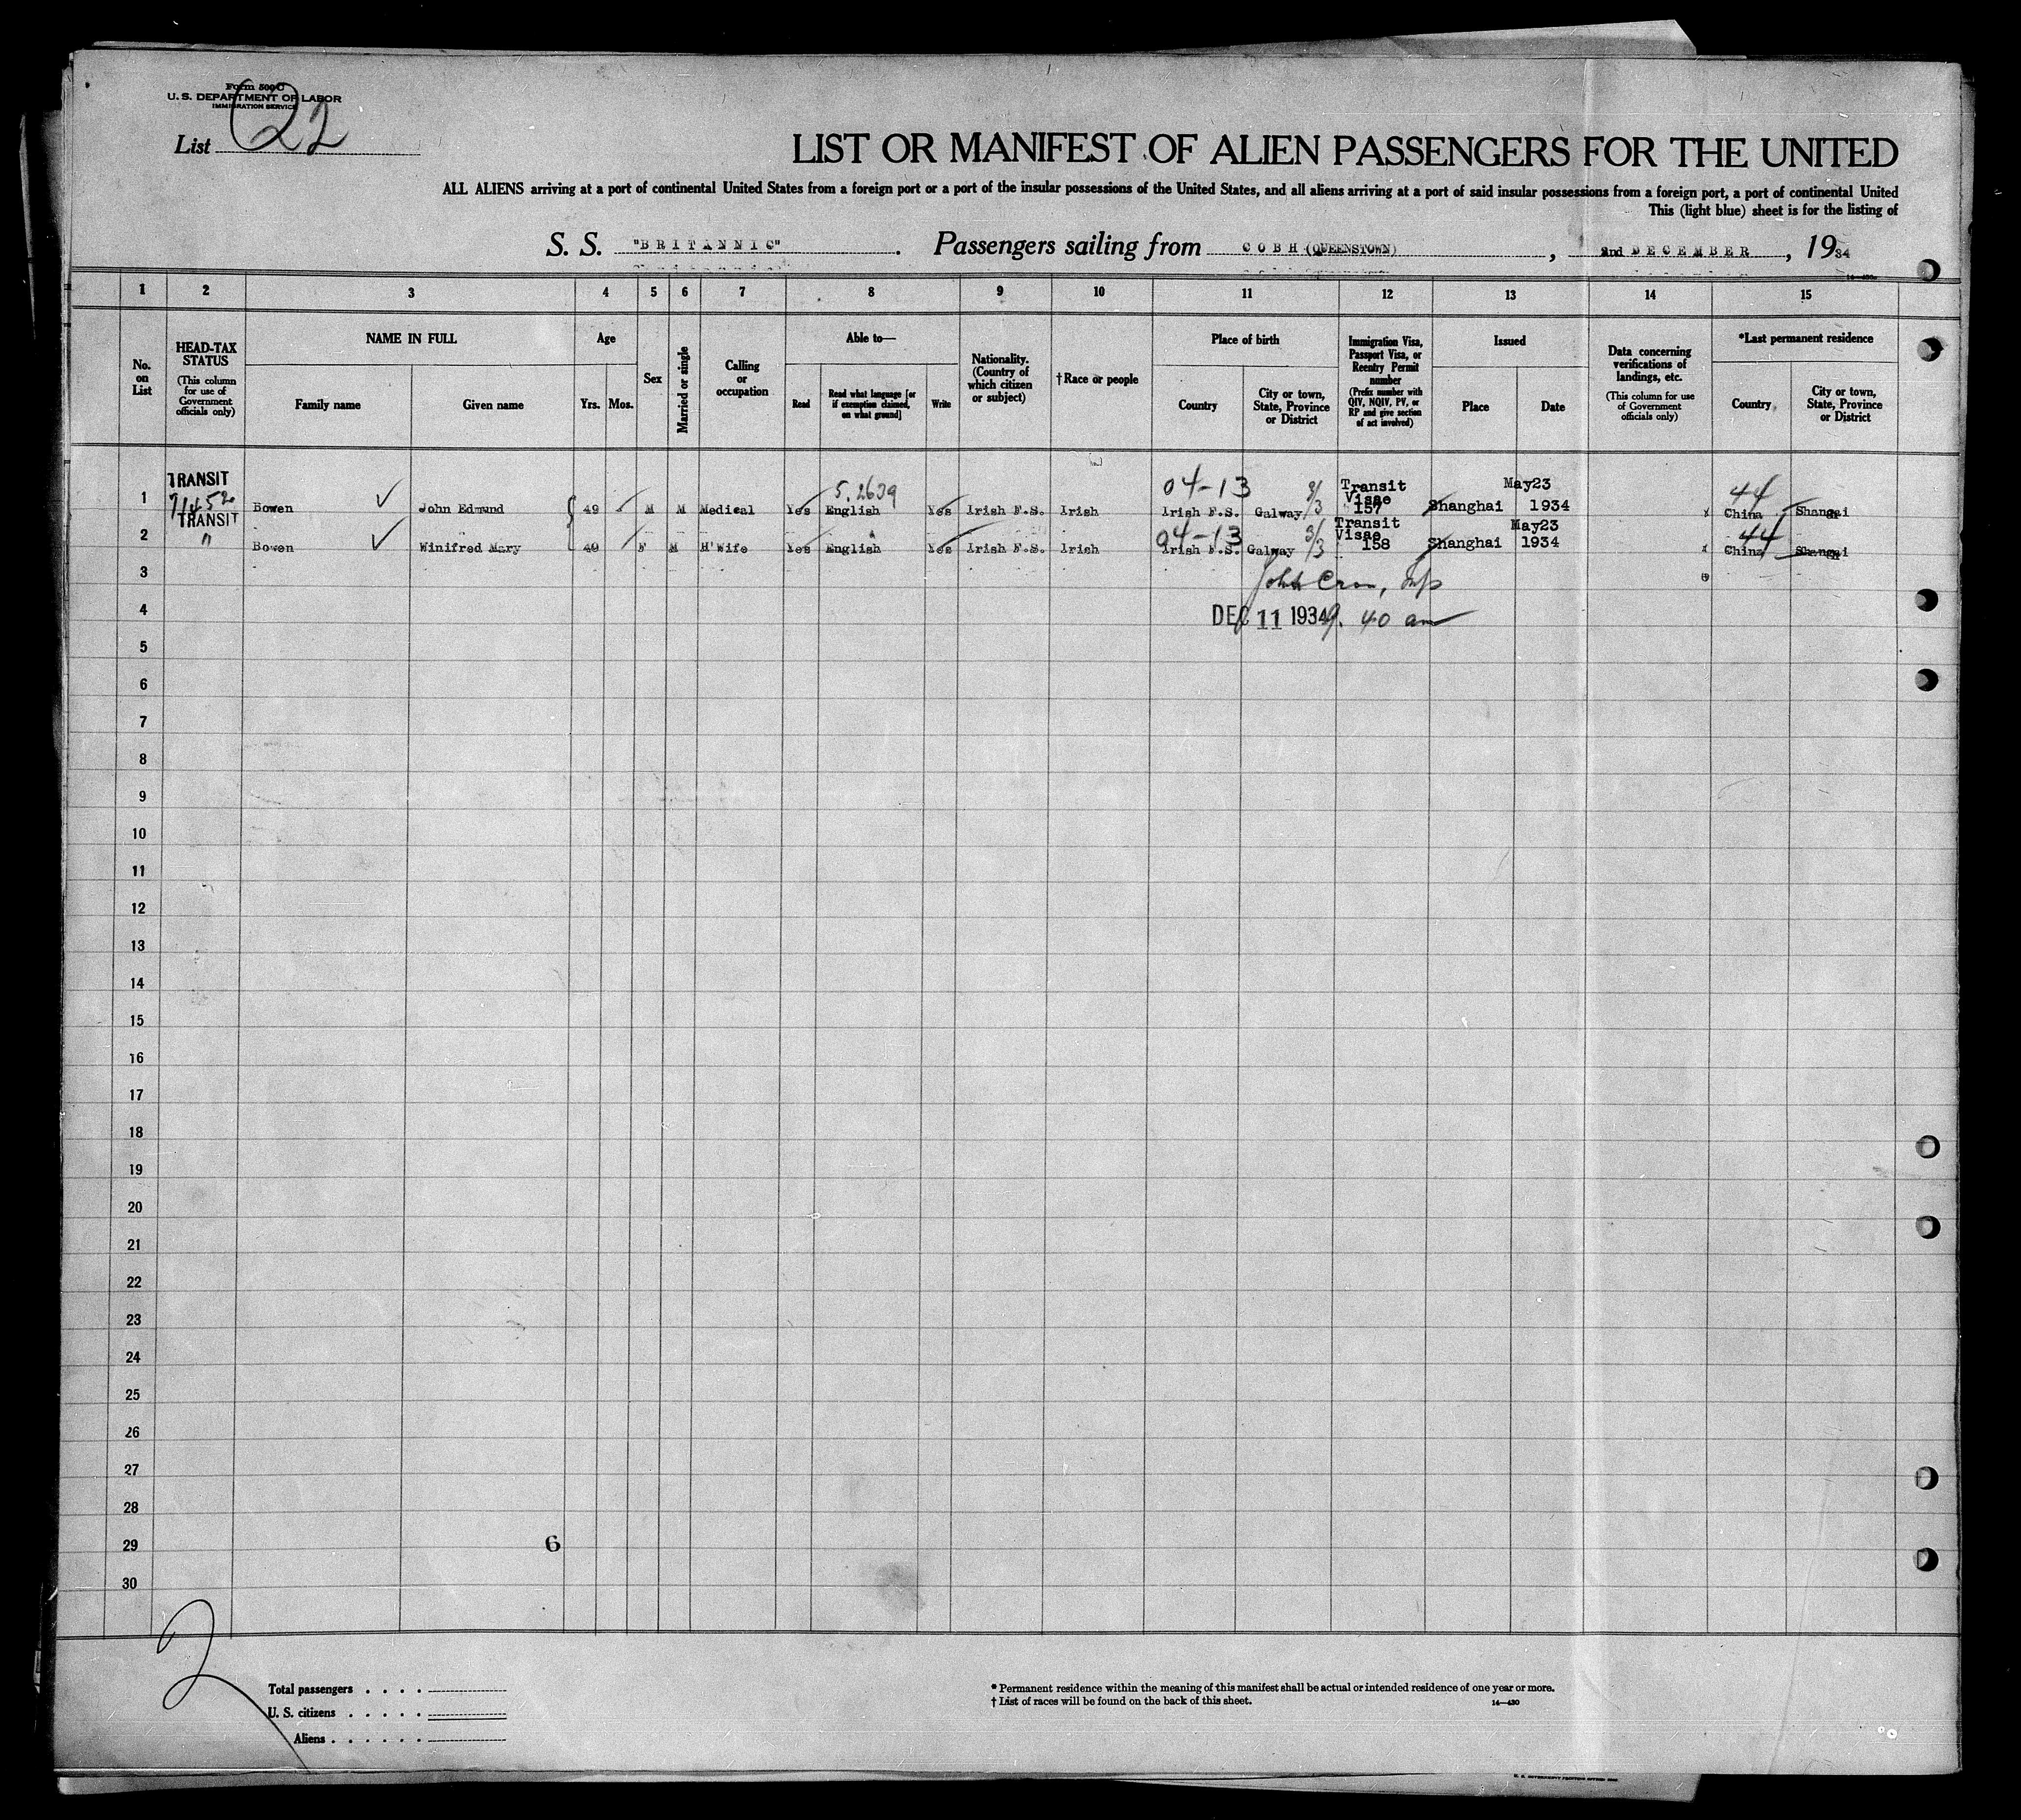 Form 500 C
U. S. DEPARTMENT OF LABOR
IMMIGRATION SERVICE
List 22
LIST OR MANIFEST OF ALIEN PASSENGERS FOR THE UNITED
ALL ALIENS arriving at a port of continental United States from a foreign port or a port of the insular possessions of the United States, and all aliens arriving at a port of said insular possessions from a foreign port, a port of continental United
This (light blue) sheet is for the listing of
S. S. "BRITANNIC". Passengers sailing from COBH (QUEENSTOWN), 2nd DECEMBER, 1934
1 2 3 4 5 6 7 8 9 10 11 12 13 14 15
No. on List
HEAD-TAX STATUS
(This column for use of Government officials only)
NAME IN FULL
Family name
Given name
Age
Yrs. Mos.
Sex
Married or single
Calling or occupation
Able to—
Read
Read what language [or if exemption claimed, on what ground]
Write
Nationality. (Country of which citizen or subject)
†Race or people
Place of birth
Country
City or town, State, Province or District
Immigration Visa, Passport Visa, or Reentry Permit number
(Prefix number with QIV, NQIV, PV, or RP and give section of act involved)
Issued
Place
Date
Data concerning verifications of landings, etc.
(This column for use of Government officials only)
*Last permanent residence
Country
City or town, State, Province or District
TRANSIT 5.2639 04-13 Transit Visae May23 44
1 Bowen John Edmund 49 M M Medical Yes English Yes Irish F.S. Irish Irish F.S. Galway 157 Shanghai 1934 China Shangai
TRANSIT 04-13 Transit Visae May23 44
2 " Bowen Winifred Mary 49 F M H'Wife Yes English Yes Irish F.S. Irish Irish F.S. Galway 158 Shanghai 1934 China Shangai
3 John
4 DEC 11 1934 9.40 am
5
6
7
8
9
10
11
12
13
14
15
16
17
18
19
20
21
22
23
24
25
26
27
28
29 6
30
2
Total passengers . . . .
U. S. citizens . . . . .
Aliens . . . . . .
* Permanent residence within the meaning of this manifest shall be actual or intended residence of one year or more.
† List of races will be found on the back of this sheet. 14—430